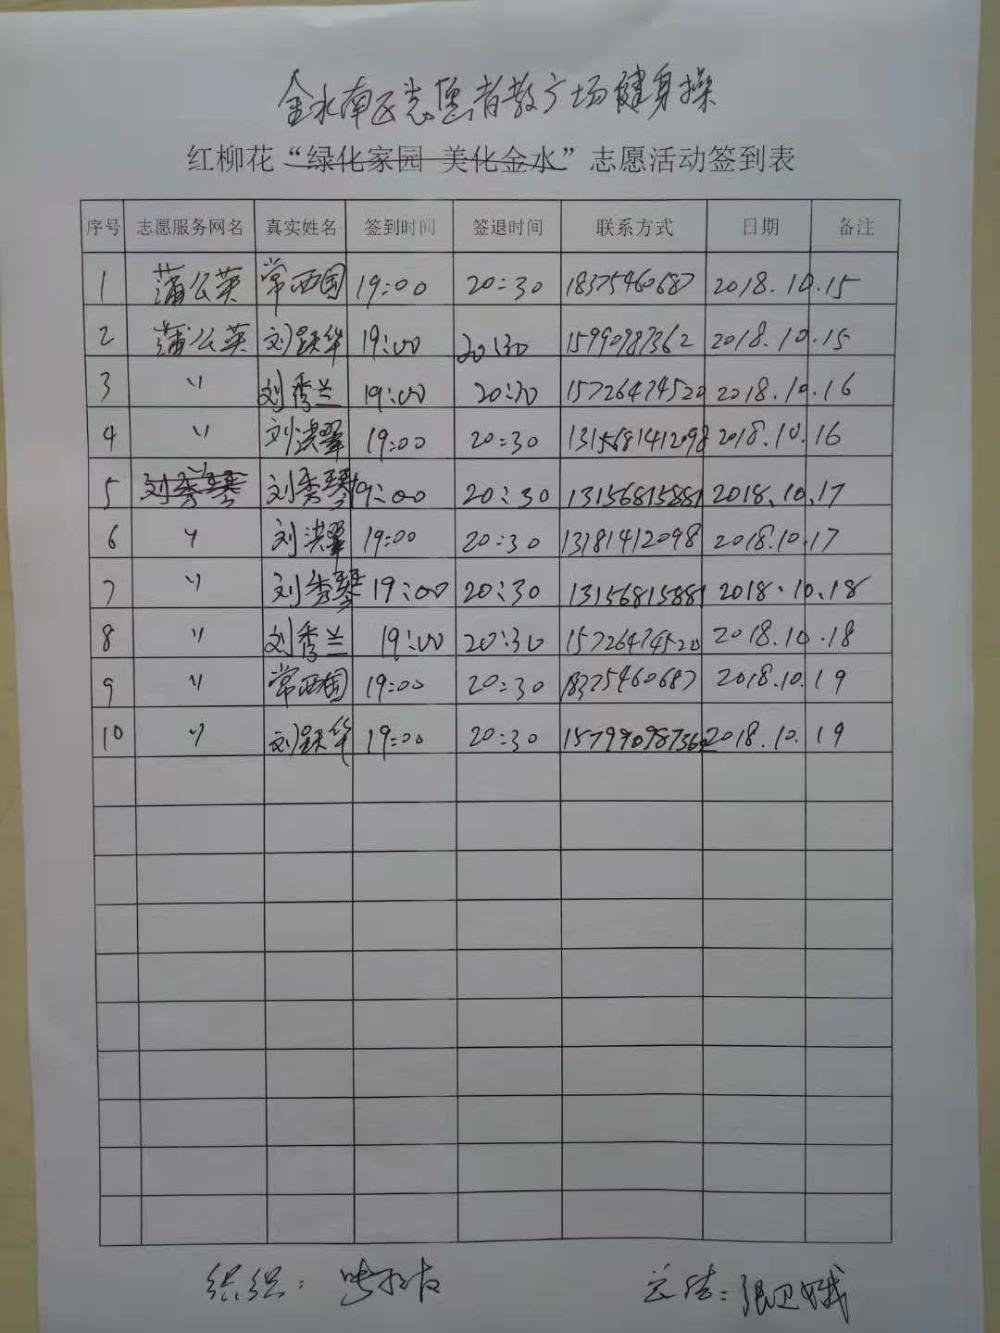 金水南区志愿者教广场健身操
红柳花“绿化家园 美化金水”志愿活动签到表
序号 志愿服务网名 真实姓名 签到时间 签退时间 联系方式 日期 备注
1 蒲公英 常西国 19:00 20:30 18375460687 2018.10.15
2 蒲公英 刘跃华 19:00 20:30 15990987362 2018.10.15
3 〃 刘秀兰 19:00 20:30 15726474520 2018.10.16
4 〃 刘洪翠 19:00 20:30 1315681412098 2018.10.16
5 刘秀琴 〃 刘秀琴 19:00 20:30 13156815881 2018.10.17
6 〃 刘洪翠 19:00 20:30 13181412098 2018.10.17
7 〃 刘秀琴 19:00 20:30 13156815881 2018.10.18
8 〃 刘秀兰 19:00 20:30 15726474520 2018.10.18
9 〃 常西国 19:00 20:30 18375460687 2018.10.19
10 〃 刘跃华 19:00 20:30 2018.10.19
组织： 总结：张卫娥